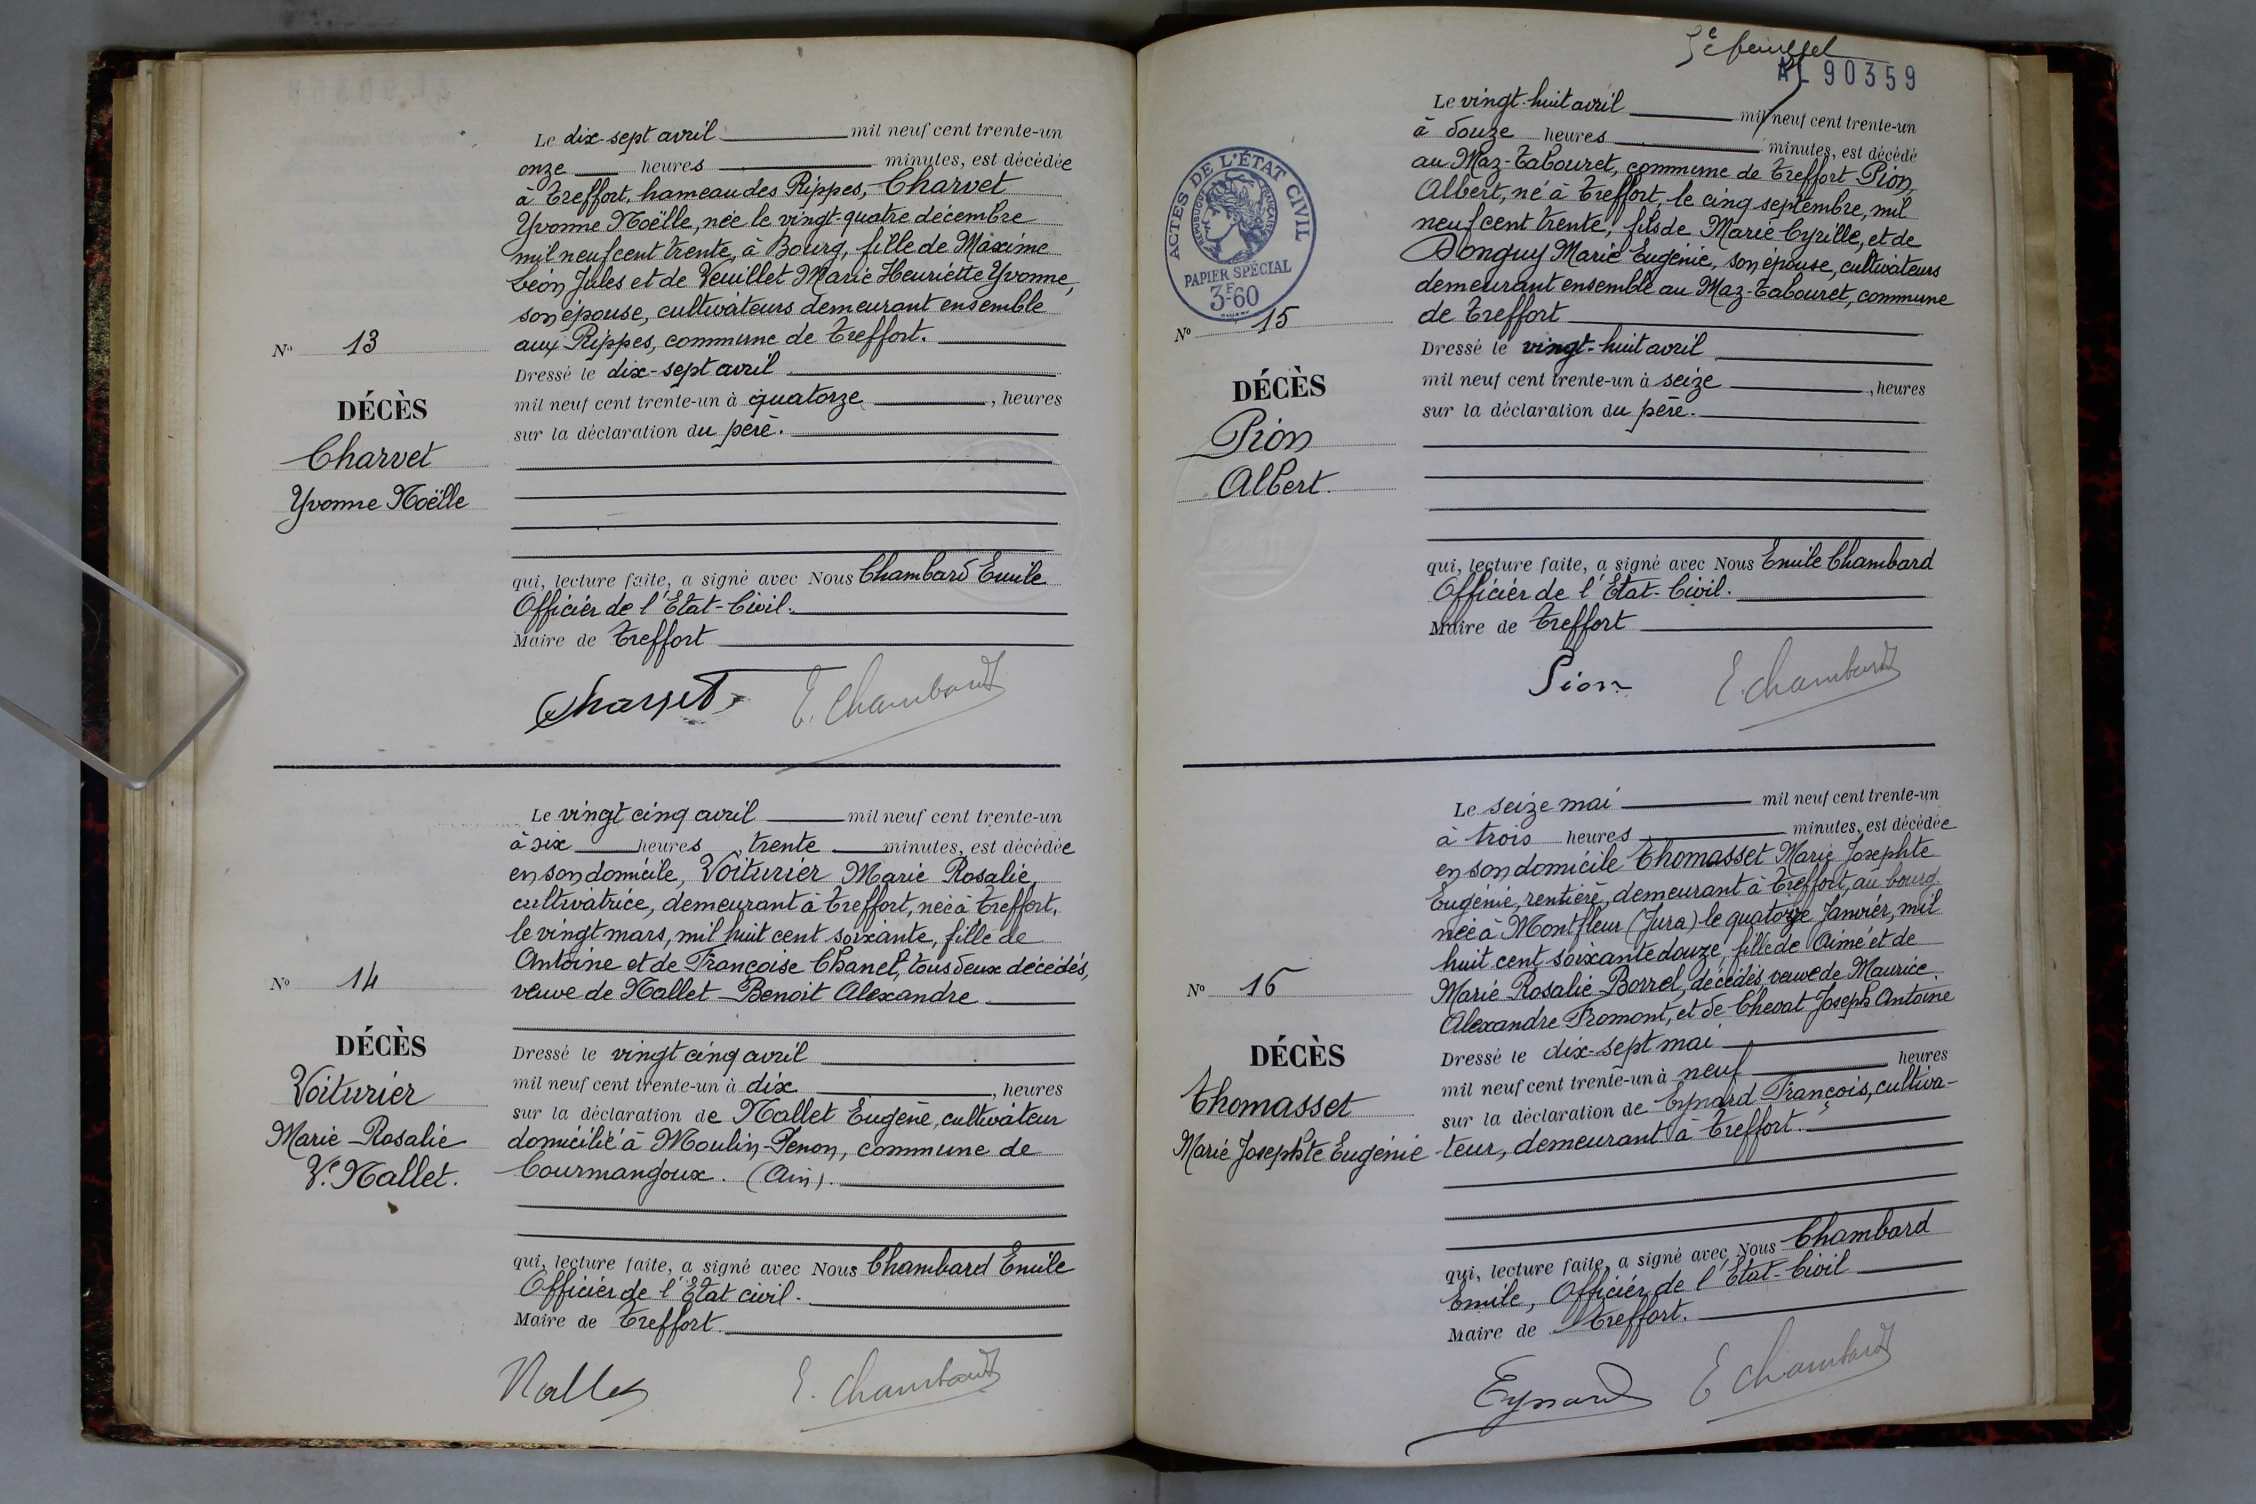 Le dix-sept avril mil neuf cent trente-un
onze heures minutes, est décédée
à Treffort, hameau des Rippes, Charvet
Yvonne Noëlle, née le vingt-quatre décembre
mil neuf cent trente, à Bourg, fille de Maxime
Léon Jules et de Veuillet Marie Henriette Yvonne,
son épouse, cultivateurs demeurant ensemble
aux Rippes, commune de Treffort.
Dressé le dix-sept avril
mil neuf cent trente-un à quatorze, heures
sur la déclaration du père.
qui, lecture faite, a signé avec Nous Chambard Emile
Officier de l'Etat-Civil.
Maire de Treffort
Charvet E. Chambard
N° 13
DÉCÈS
Charvet
Yvonne Noëlle
Le vingt cinq avril mil neuf cent trente-un
à six heures trente minutes, est décédée
en son domicile, Voiturier Marie Rosalie,
cultivatrice, demeurant à Treffort, née à Treffort,
le vingt mars, mil huit cent soixante, fille de
Antoine et de Françoise Chanel, tous deux décédés,
veuve de Nallet Benoit Alexandre
Dressé le vingt cinq avril
mil neuf cent trente-un à dix, heures
sur la déclaration de Nallet Eugène, cultivateur
domicilié à Moulin-Penon, commune de
Courmangoux. (Ain).
qui, lecture faite, a signé avec Nous Chambard Emile
Officier de l'Etat civil.
Maire de Treffort.
Nallet E. Chambard
N° 14
DÉCÈS
Voiturier
Marie-Rosalie
Ve Nallet.
5e feuillet
AL 90359
ACTES DE L'ÉTAT CIVIL
RÉPUBLIQUE FRANÇAISE
PAPIER SPÉCIAL
3F60
Le vingt-huit avril mil neuf cent trente-un
à douze heures minutes, est décédé
au Maz-Tabouret, commune de Treffort Pion,
Albert, né à Treffort, le cinq septembre, mil
neuf cent trente, fils de Marie Cyrille, et de
Donguy Marie Eugénie, son épouse, cultivateurs
demeurant ensemble au Maz-Tabouret, commune
de Treffort
Dressé le vingt-huit avril
mil neuf cent trente-un à seize, heures
sur la déclaration du père.
qui, lecture faite, a signé avec Nous Emile Chambard
Officier de l'Etat-Civil.
Maire de Treffort
Pion E. Chambard
N° 15
DÉCÈS
Pion
Albert.
Le seize mai mil neuf cent trente-un
à trois heures minutes, est décédée
en son domicile Thomasset Marie Josephte
Eugénie, rentière, demeurant à Treffort, au bourg
née à Montfleur (Jura) le quatorze Janvier, mil
huit cent soixante douze, fille de Aimé et de
Marie Rosalie Borrel, décédés, veuve de Maurice
Alexandre Fromont, et de Chevat Joseph Antoine
Dressé le dix-sept mai
mil neuf cent trente-un à neuf heures
sur la déclaration de Eynard François, cultiva-
teur, demeurant à Treffort.
qui, lecture faite, a signé avec Nous Chambard
Emile, Officier de l'Etat-Civil
Maire de Treffort.
Eynard E Chambard
N° 16
DÉCÈS
Thomasset
Marie Josephte Eugénie